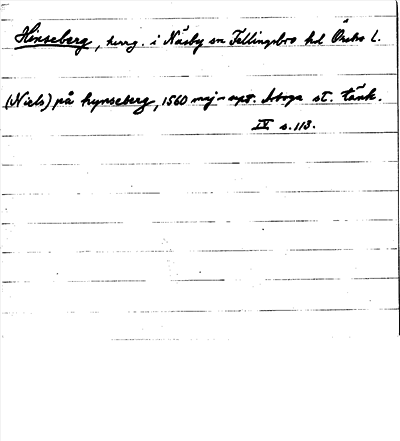 Hinseberg, herrg. i Näsby sn Fellingsbro hd Örebro l.
(Niels) på hynseberg, 1560 maj - sept. Arboga st. tänk.
IV s. 113.